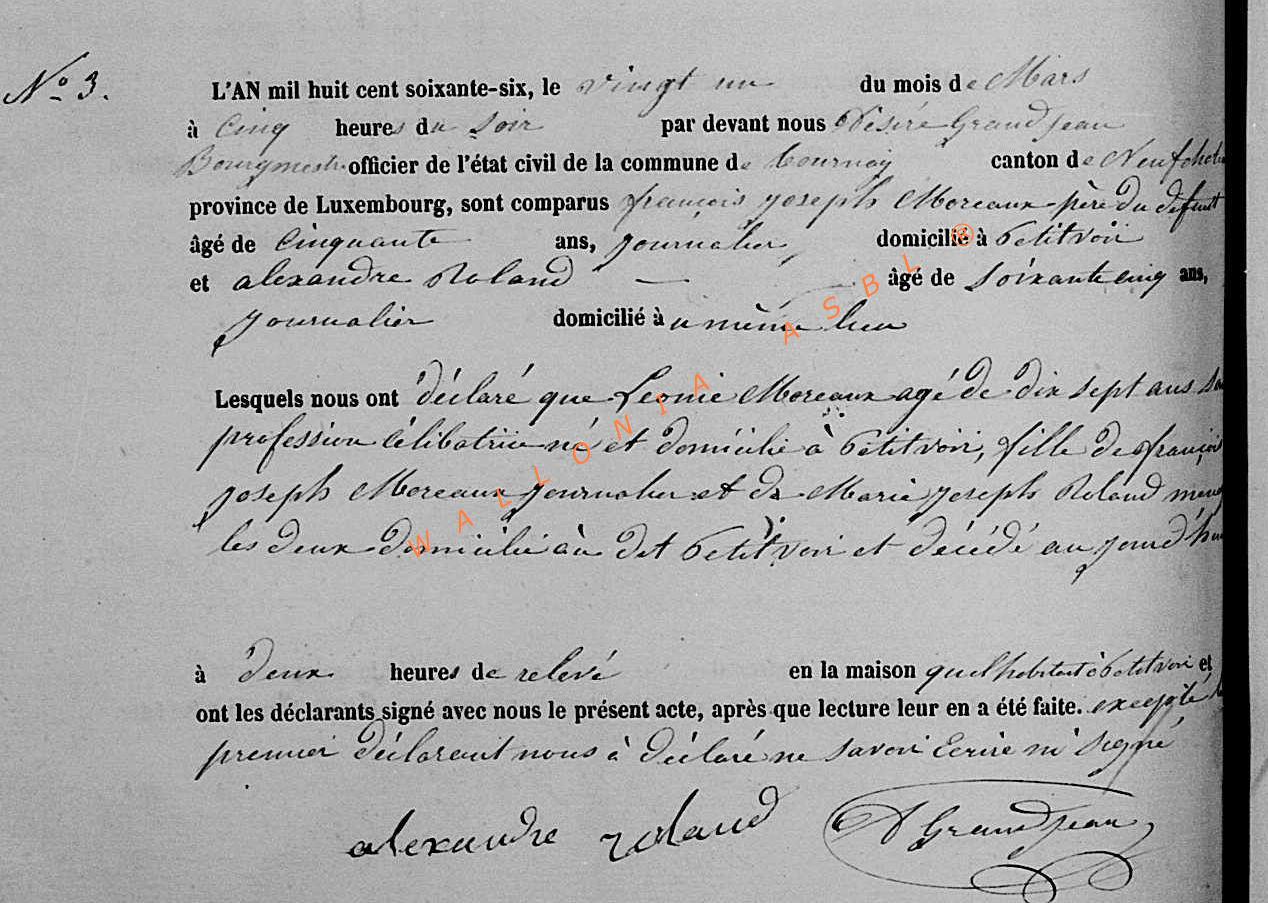 No 3.
L'AN mil huit cent soixante-six, le vingt un du mois de Mars
à cinq heures du soir par devant nous Désiré Grandjean
Bourgmestre officier de l'état civil de la commune de tournay canton de Neufchate
province de Luxembourg, sont comparus françois joseph Moreaux père du défunt
âgé de cinquante ans, journalier, domicilié à petitvoir
et alexandre Roland âgé de soixante cinq ans,
journalier domicilié à u même lieu
Lesquels nous ont déclaré que Leonie Moreaux agé de dix sept ans sa
profession célibatrice né et domicilié à petitvoir, fille de françois
joseph Moreaux journalier et de Marie joseph Roland mena
les deux domicilié au dit petitvoir et décédé au jourd'hu
à deux heures de relevé en la maison quel habitait à petitvoir et
ont les déclarants signé avec nous le présent acte, après que lecture leur en a été faite. excepté le
premier déclarant nous à déclaré ne savoir Ecrire ni signé
alexandre roland D Grandjean
WALLONIA ASBL ®